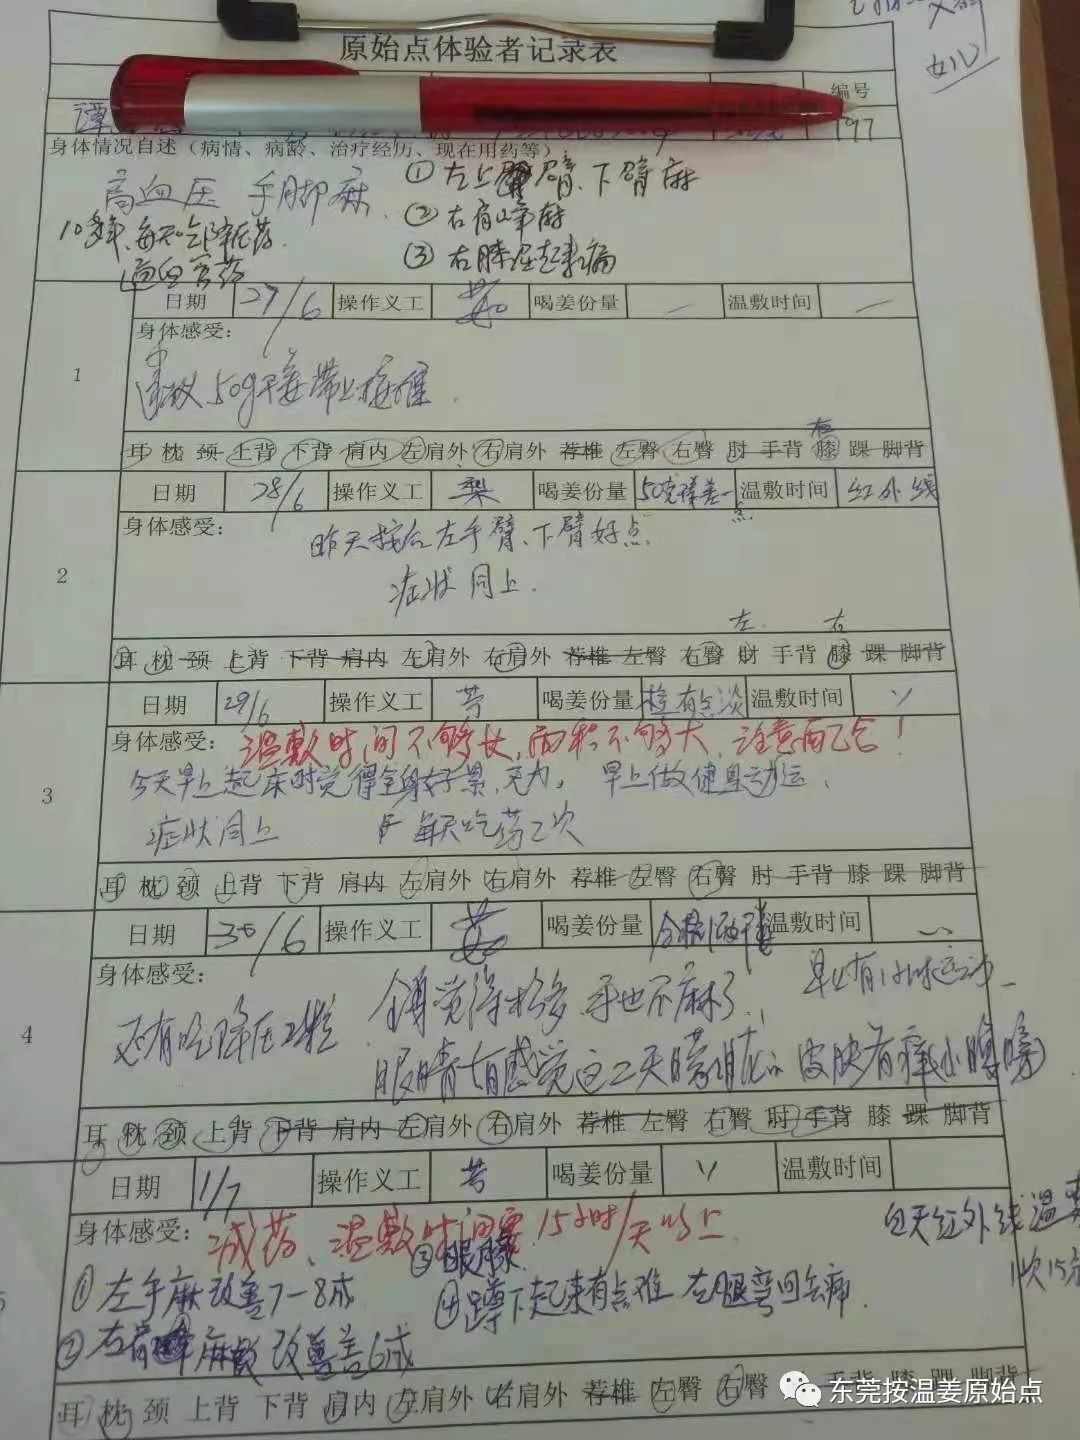 原始点体验者记录表
编号
谭
197
身体情况自述（病情、病龄、治疗经历、现在用药等）
高血压 手脚麻
10多年、每天吃降压药
通血管药
①左上臂、下臂麻
②右肩峰麻
③右膝屈起来痛
1
日期 27/6 操作义工 喝姜份量 — 温敷时间 —
身体感受：
建议50g干姜带上接催
耳 枕 颈 上背 下背 肩内 左肩外 右肩外 荐椎 左臀 右臀 肘 手背 右膝 踝 脚背
2
日期 28/6 操作义工 梨 喝姜份量 50克 温敷时间 红外线
身体感受：
昨天按后左手臂、下臂好点
症状同上.
左 右
耳 枕 颈 上背 下背 肩内 左肩外 右肩外 荐椎 左臀 右臀 肘 手背 膝 踝 脚背
3
日期 29/6 操作义工 喝姜份量 有点淡 温敷时间
身体感受：温敷时间不够长，面积不够大，注意配合！
今天早上起床时觉得全身好累，无力。 早上做健身运动
症状同上 每天吃药2次
耳 枕 颈 上背 下背 肩内 左肩外 右肩外 荐椎 左臀 右臀 肘 手背 膝 踝 脚背
4
日期 30/6 操作义工 喝姜份量 温敷时间
身体感受：
早上有1小时运动
全身觉得松多，手也不麻了，
还有吃降压2粒
眼睛有感觉这二天朦 皮肤有痒(小腿
耳 枕 颈 上背 下背 肩内 左肩外 右肩外 荐椎 左臀 右臀 肘 手背 膝 踝 脚背
5
日期 1/7 操作义工 喝姜份量 温敷时间
身体感受：减药、温敷时间要15小时/天以上
白天红外线温敷
1次15分
①左手麻改善7-8成
②右肩峰麻改善6成
③眼朦
④蹲下起来有点难 左腿弯回会痛.
耳 枕 颈 上背 下背 肩内 左肩外 右肩外 荐椎 左臀 右臀 手背 膝 踝 脚背
东莞按温姜原始点